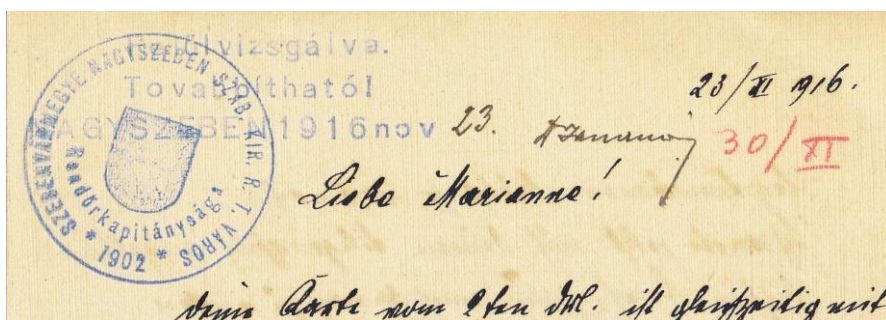 Felülvizsgálva.
Továbbítható!
NAGYSZEBEN 1916 nov 23.
SZEBENVÁRMEGYE NAGYSZEBEN SZAB. KIR. R. T. VÁROS
Rendőrkapitánysága
* 1902 *
23/XI 916.
30/XI
Liebe Marianne!
Deine Karte vom 9ten dM. ist gleichzeitig mit